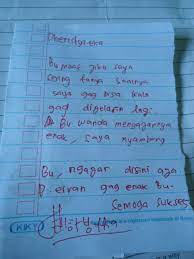 Bu maaf jika saya
sering tanya soalnya
saya gag bisa kalo
gag dijelasin lagi.
Bu wanda mengajarnya
enak, saya nyambung
Bu, ngajar disini aja
P. elvan gag enak bu.
Semoga sukses
KIKY